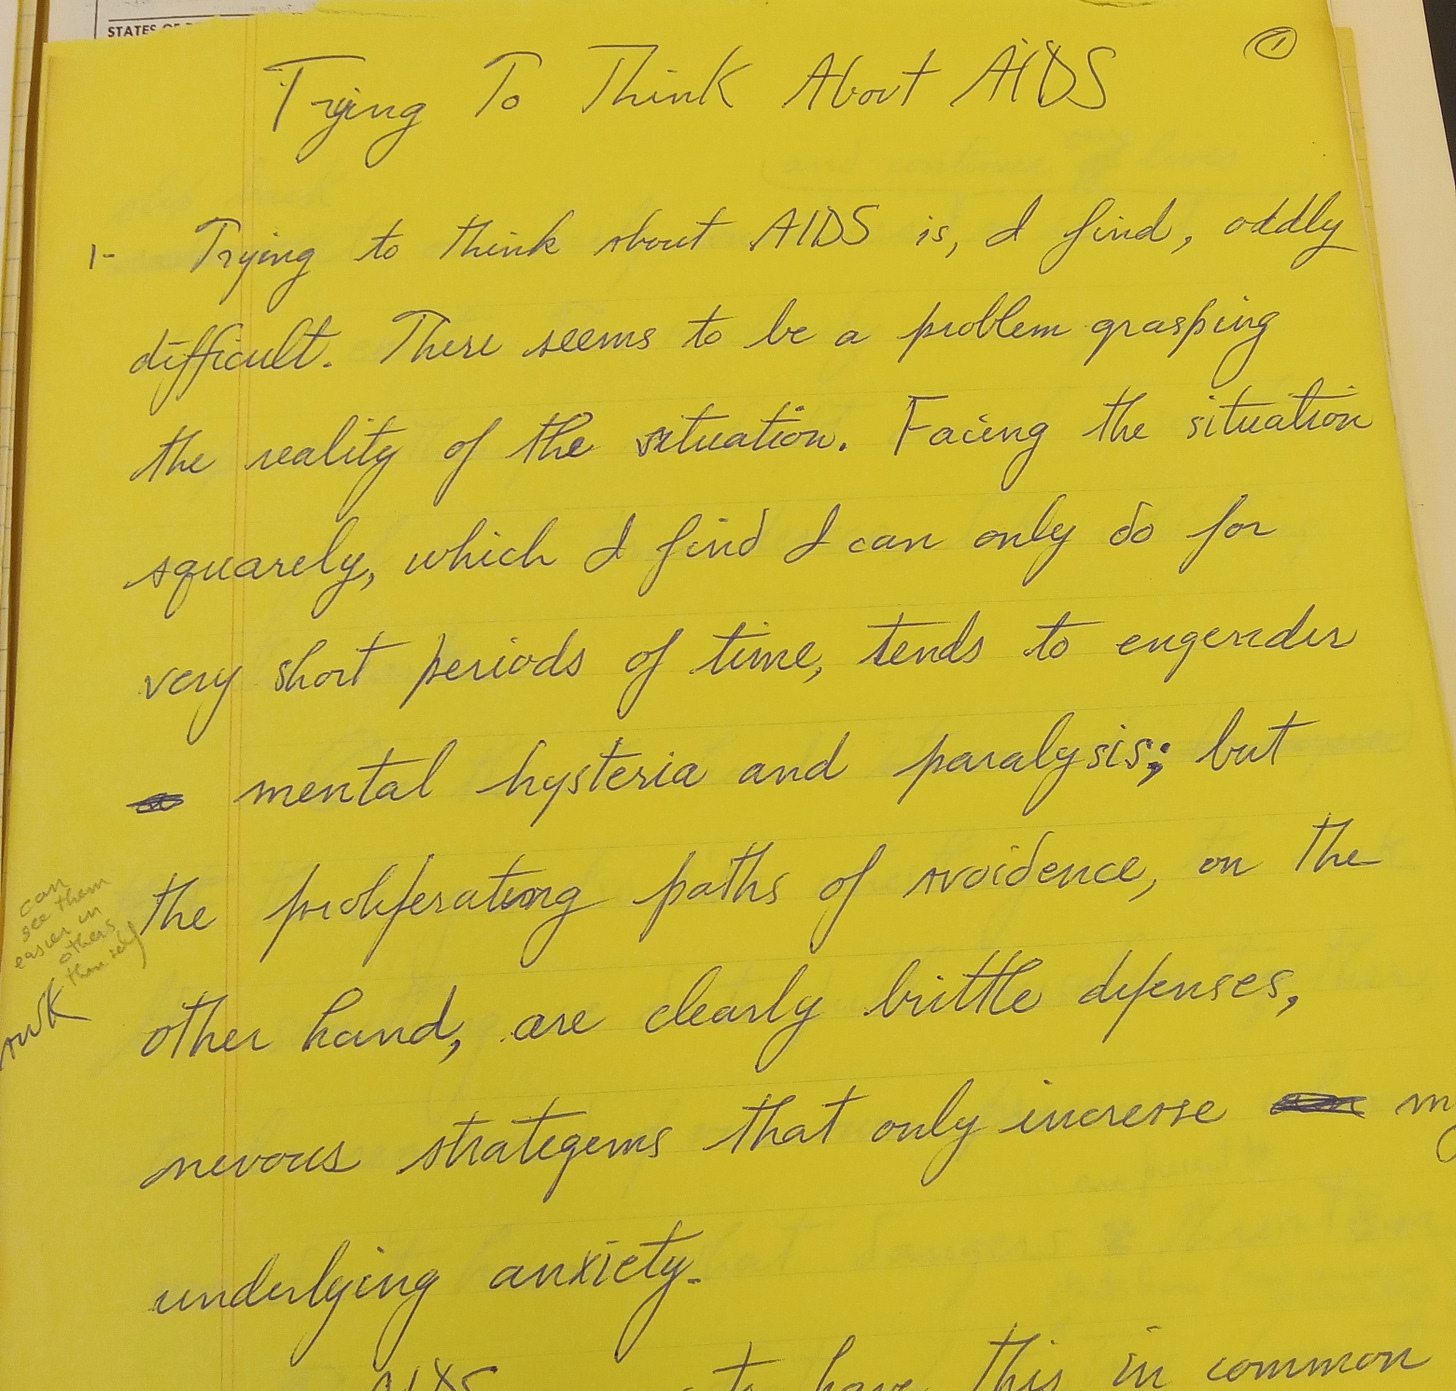 STATES OF
1
Trying To Think About AIDS
1- Trying to think about AIDS is, I find, oddly
difficult. There seems to be a problem grasping
the reality of the situation. Facing the situation
squarely, which I find I can only do for
very short periods of time, tends to engender
mental hysteria and paralysis; but
the proliferating paths of avoidence, on the
other hand, are clearly brittle defenses,
nervous strategems that only increase my
underlying anxiety.
AIDS to have this in common
can
see them
easier in
others
than self